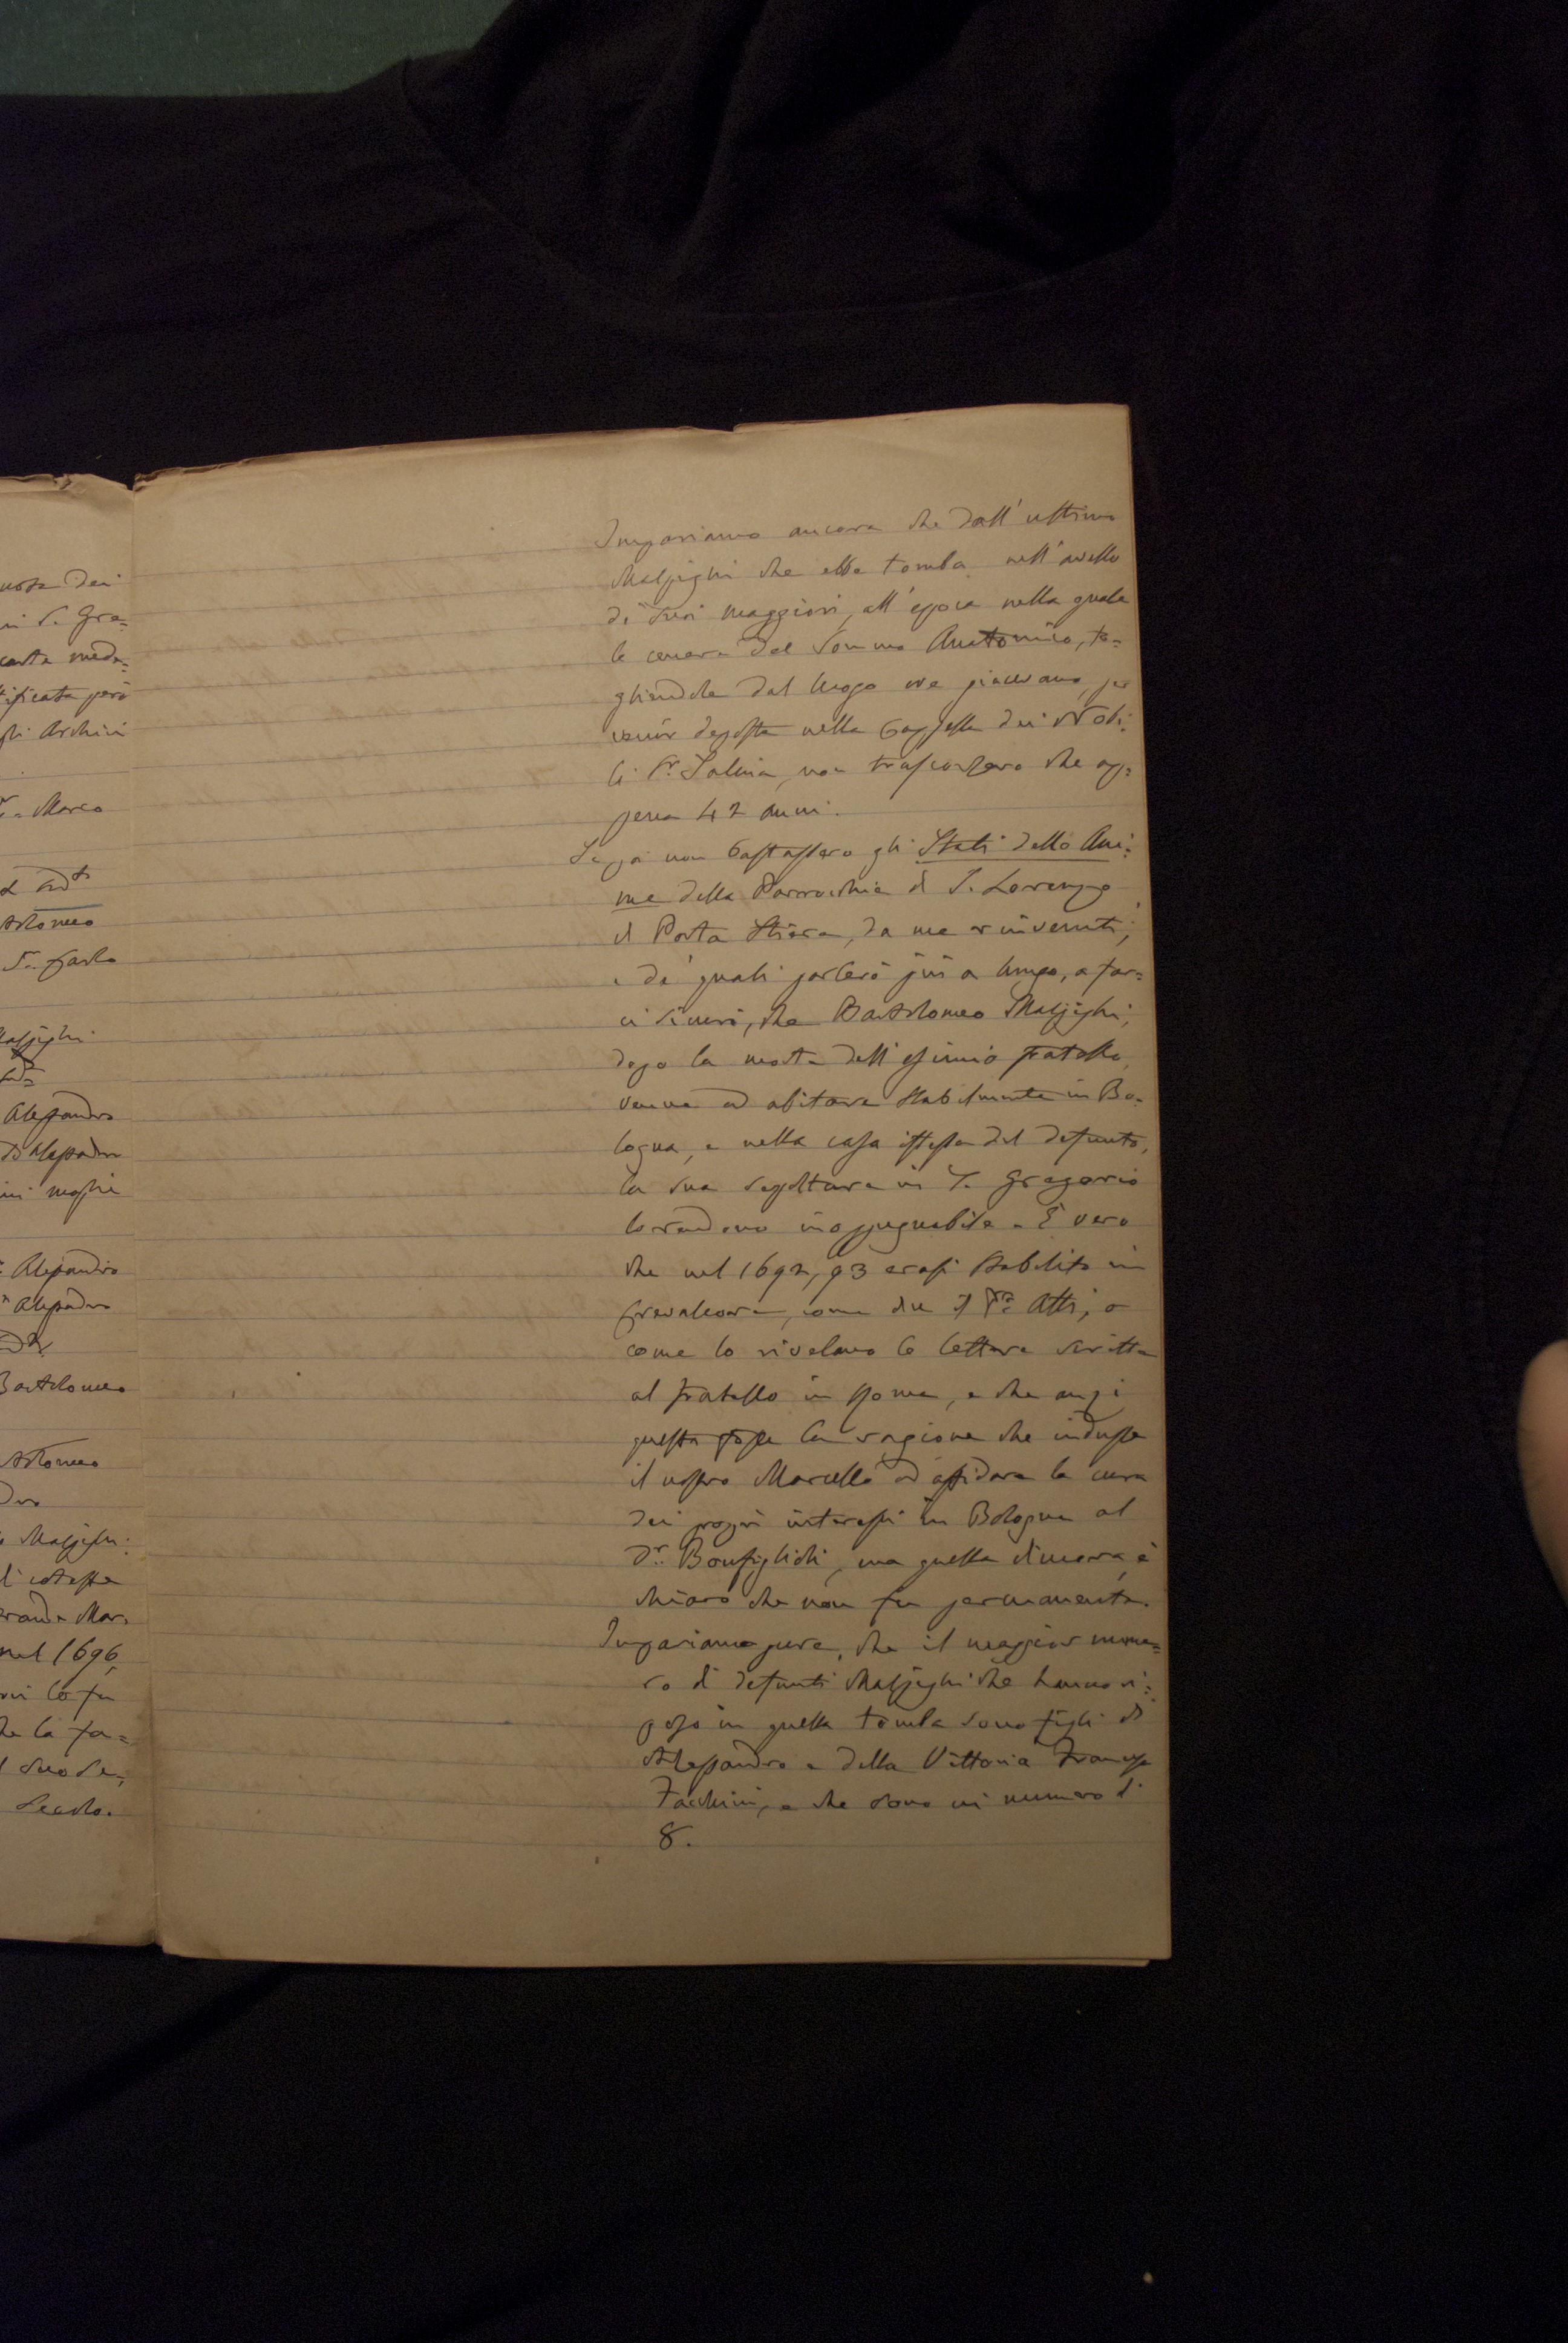 nosa dei
in S. Gra=
carta mede=
tificata però
gli Archivi
Marco
Artomeo
S. Carlo
Malpighi
Alessandro
D'Alessandro
ini moglie
Alessandro
Alessandro
Bartolomeo
Artomeo
Malpighi.
di cotesta
Mar=
nel 1696,
lo fu
he la fa=
l suo Se=
Secolo.
Impariamo ancora che dall'ultimo
Malpighi che ebbe tomba nell'avello
di suoi maggiori, all'epoca nella quale
le cenere del Sommo Anatomico, to=
gliendole dal luogo ove giacevano, per
venir deposte nella Cappella dei Nobi=
li Sr. Salina, non trascorsero che ap=
pena 42 anni.
Se poi non bastassero gli Stati delle Ani=
me della Parrocchia di S. Lorenzo
di Porta Stiera, da me rinvenuti,
e de' quali parlerò più a lungo, a far=
ci sicuri, che Bartolomeo Malpighi,
dopo la morte dell'esimio fratello,
venne ad abitare stabilmente in Bo=
logna, e nella casa istessa del defunto,
la sua sepoltura in S. Gregorio
lo rendono inoppugnabile. È vero
che nel 1692, 93 erasi stabilito in
Crevalcore, come dice il Atti, o
come lo rivelano le lettere scritte
al fratello in Roma, e che anzi
questa fosse la ragione che indusse
il nostro Marcello ad affidare la cura
dei propri interessi in Bologna al
Dr. Bonfiglioli, ma quella dimora, è
chiaro che non fu permanente.
Impariamo pure, che il maggior nume=
ro di defunti Malpighi che hanno ri=
poso in quella tomba sono figli di
Alessandro e della Vittoria Francesca
Fachini, e che sono in numero di
8.